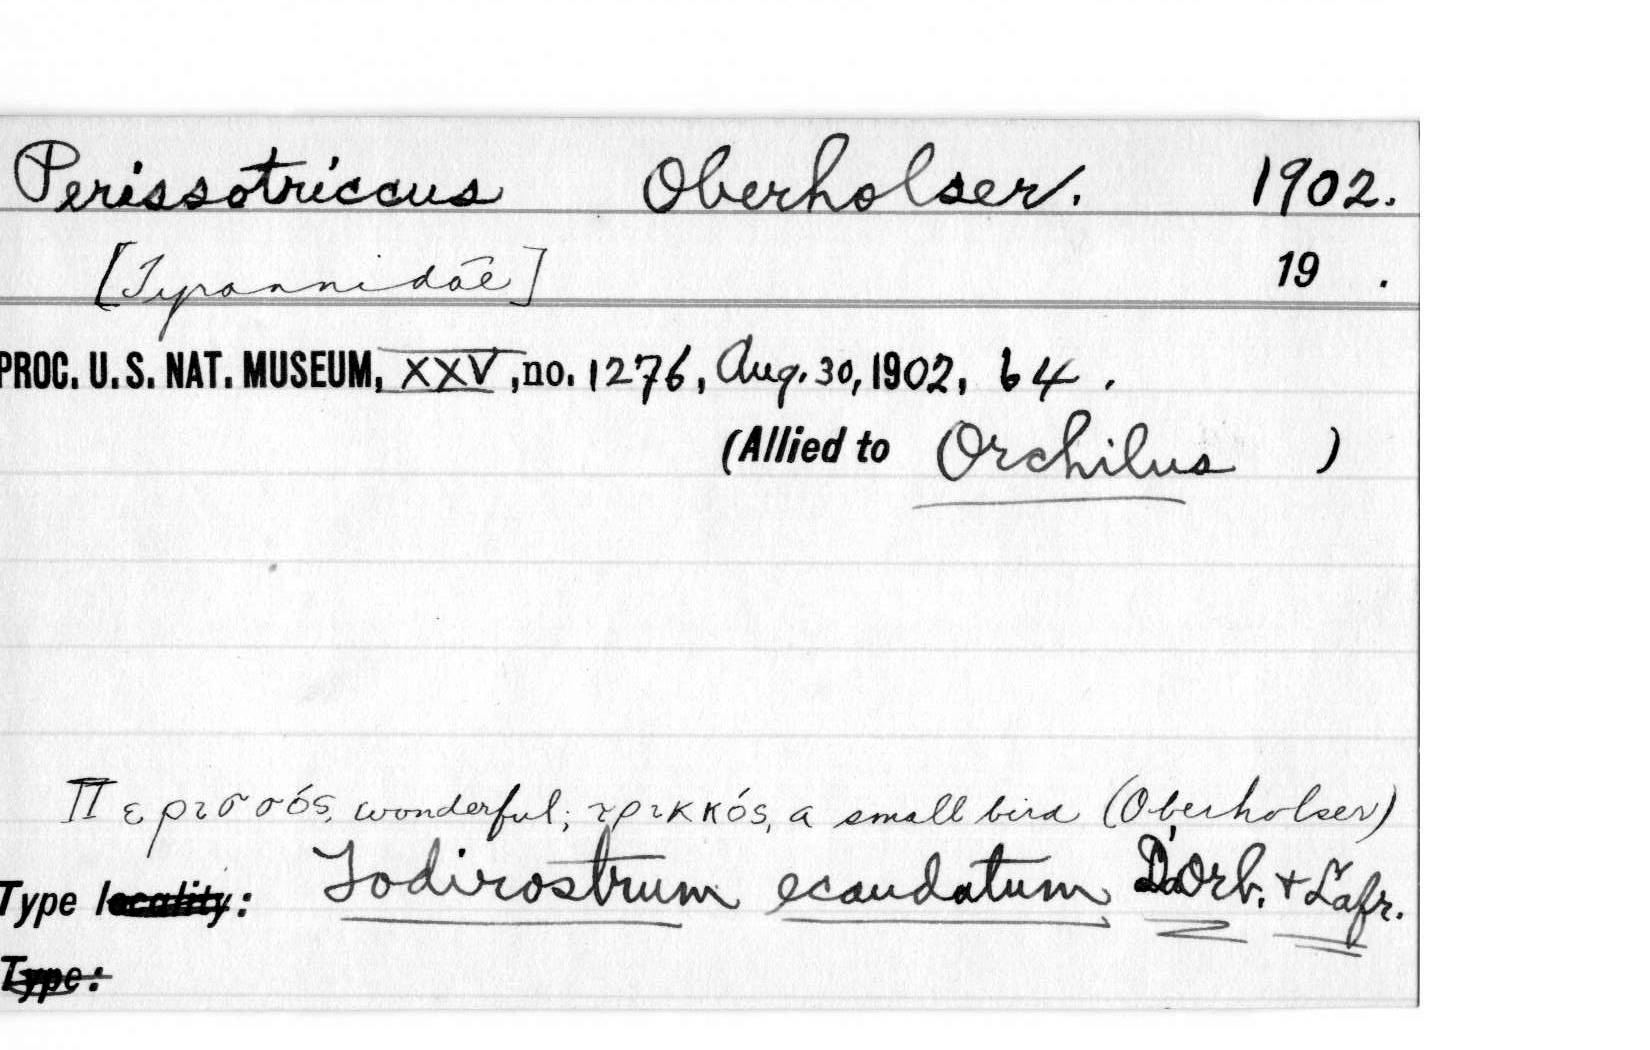 Perissotriccus Oberholser. 1902.
[Tyrannidae] 19 .
PROC. U. S. NAT. MUSEUM, XXV, no. 1276, Aug. 30, 1902, 64.
(Allied to Orchilus )
Περισσός, wonderful; τρικκός, a small bird (Oberholser)
Type locality: Todirostrum ecaudatum D'Orb. + Lafr.
Type: